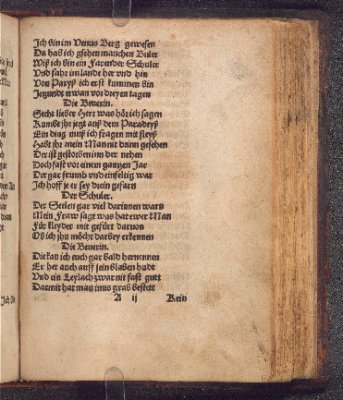 Ich bin im Venus Berg gewesen
Da hab ich gsehen manchen Buler
Wiß ich bin ein Farender Schuler
Vnd fahr im lande her vnd hin
Von Paryß ich erst kummen bin
Jegundt etwan vor dreyen tagen
Die Beverin.
Secht lieber Herr was hör ich sagen
Kumbt jhr jetzt auß dem Paradeyß
Ein ding muß ich fragen mit fleyß
Habt jhr mein Man nit dinn gesehen
Der ist gestorben inn der nehen
Doch fast vor einem gantzen Jar
Der gar frumb vnd einfeltig war
Ich hoff je er sey drein gefarn
Der Schuler.
Der Seelen gar viel darinnen warn
Mein Fraw sagt was hat ewer Man
Für kleyder mit gefürt daruon
Ob ich jhn möcht darbey erkennen
Die Beverin.
Die kan ich euch gar bald hernennen
Er het auch auff sein blaben hudt
Vnd ein Leylach zwar nit fast gut
Darmit hat man inns grab bestett
A ij Kein